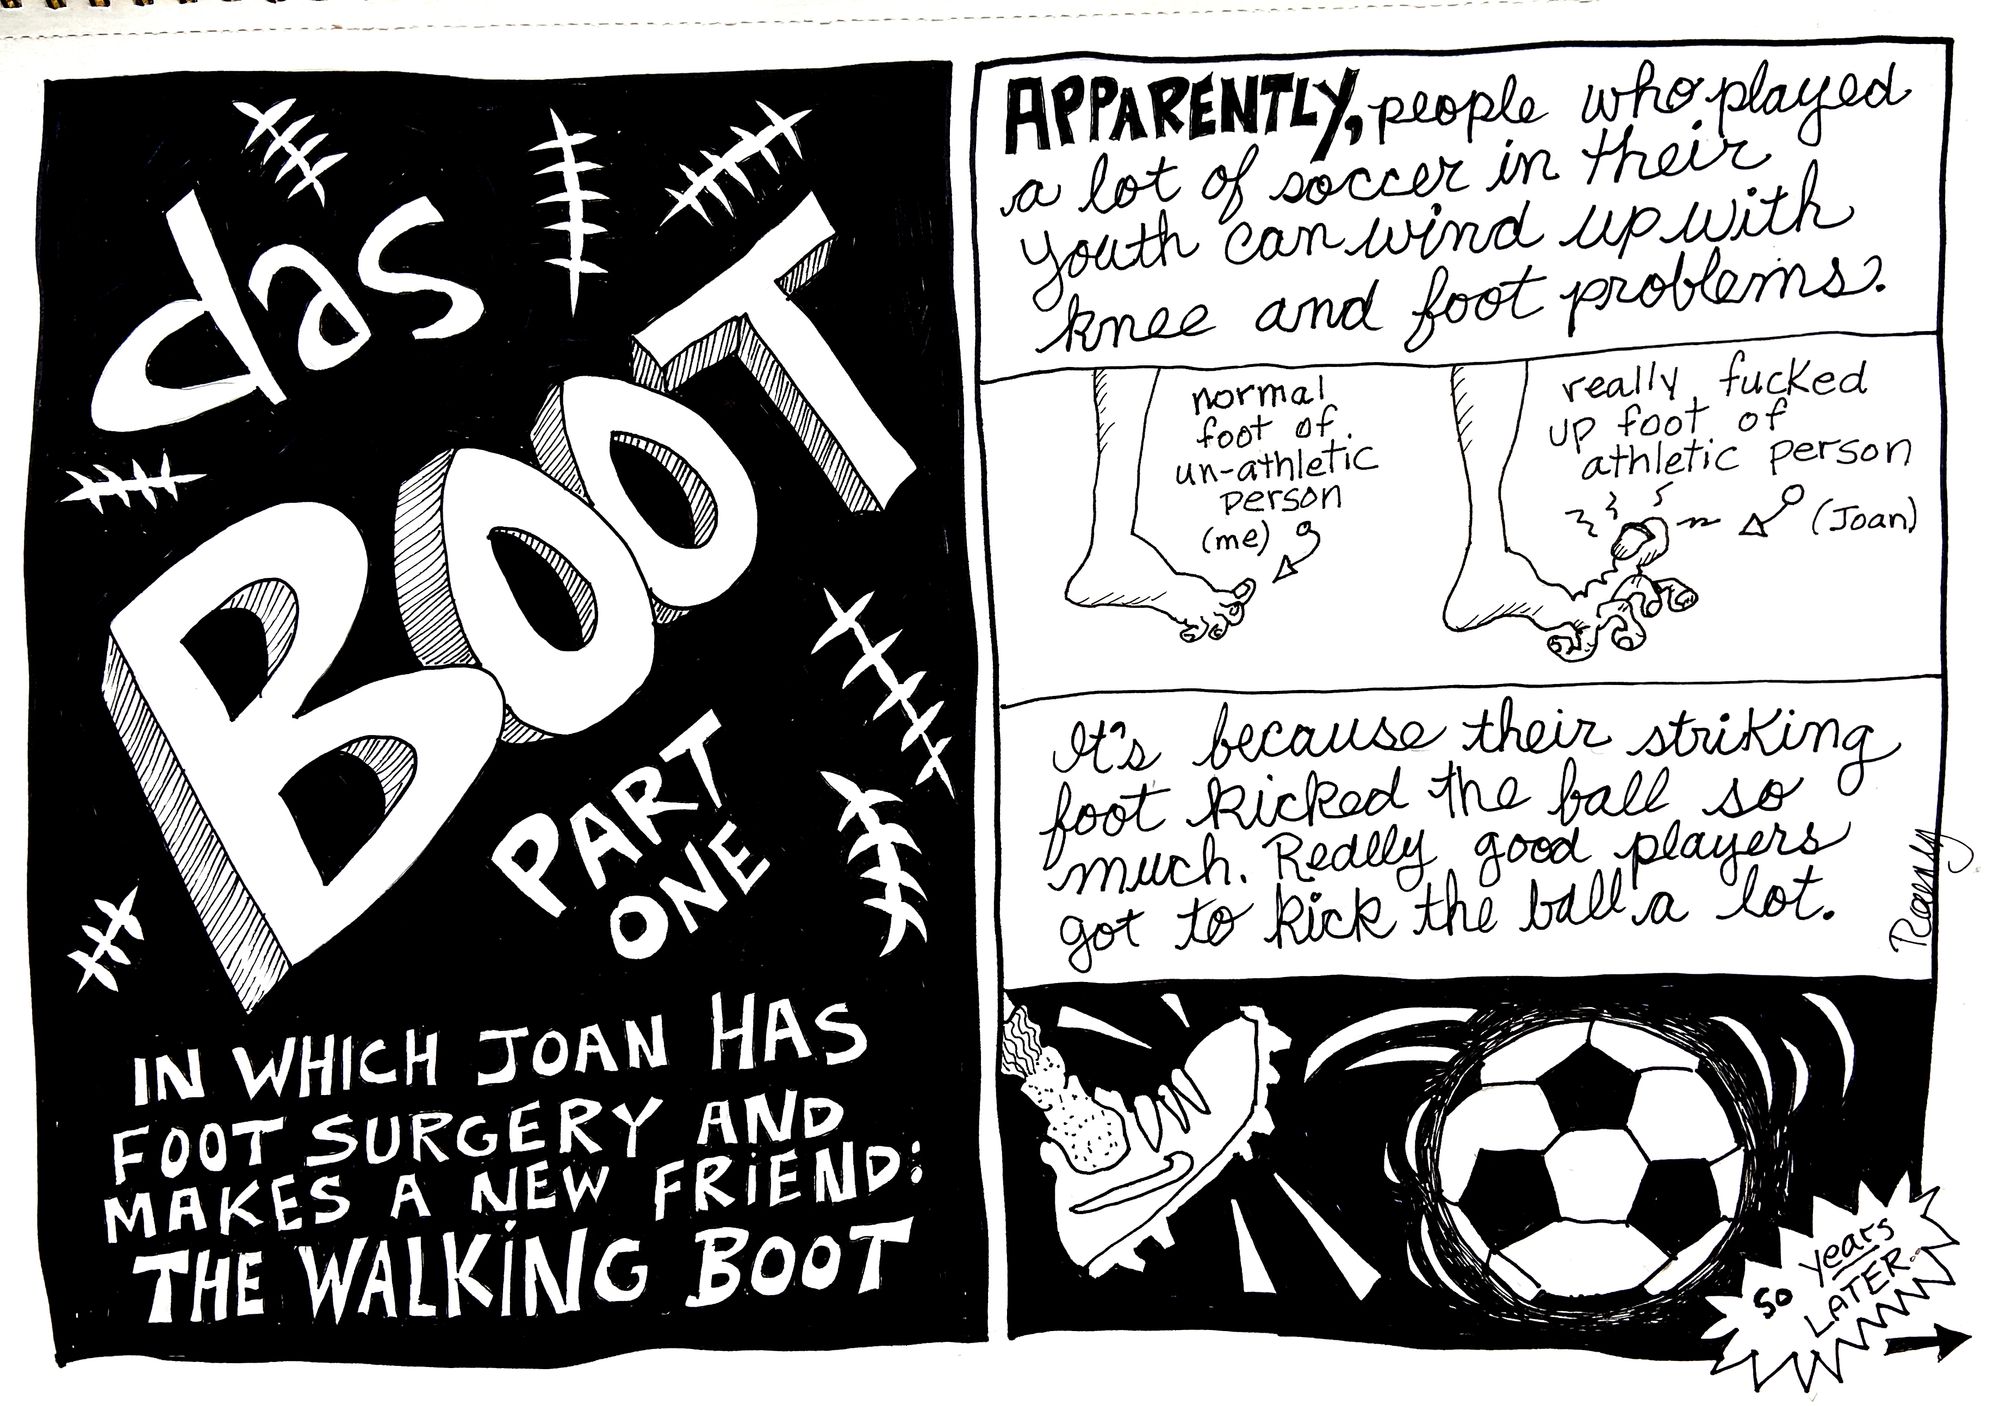 das
BOOT
PART
ONE
IN WHICH JOAN HAS
FOOT SURGERY AND
MAKES A NEW FRIEND:
THE WALKING BOOT
APPARENTLY, people who played
a lot of soccer in their
youth can wind up with
knee and foot problems.
normal
foot of
un-athletic
person
(me)
really fucked
up foot of
athletic person
(Joan)
It's because their striking
foot kicked the ball so
much. Really good players
got to kick the ball a lot.
50 years
LATER